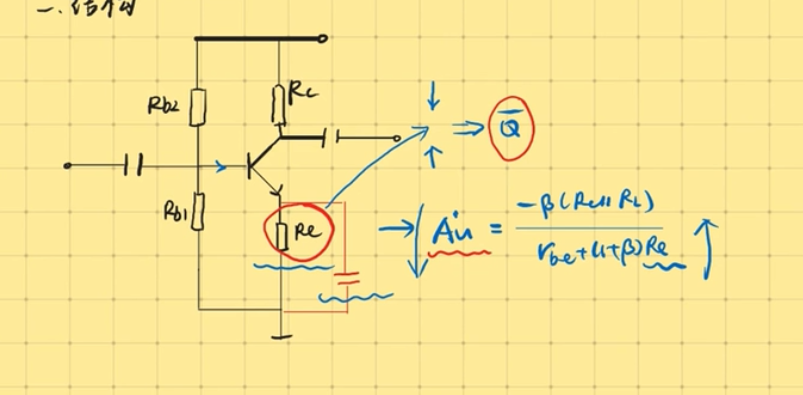 一、结构
Rb2
Rc
↓
⇒ Q̄
↑
Rb1
Re
→ ↓ A̍u = -β(Rc∥RL) / rbe+(1+β)Re ↑